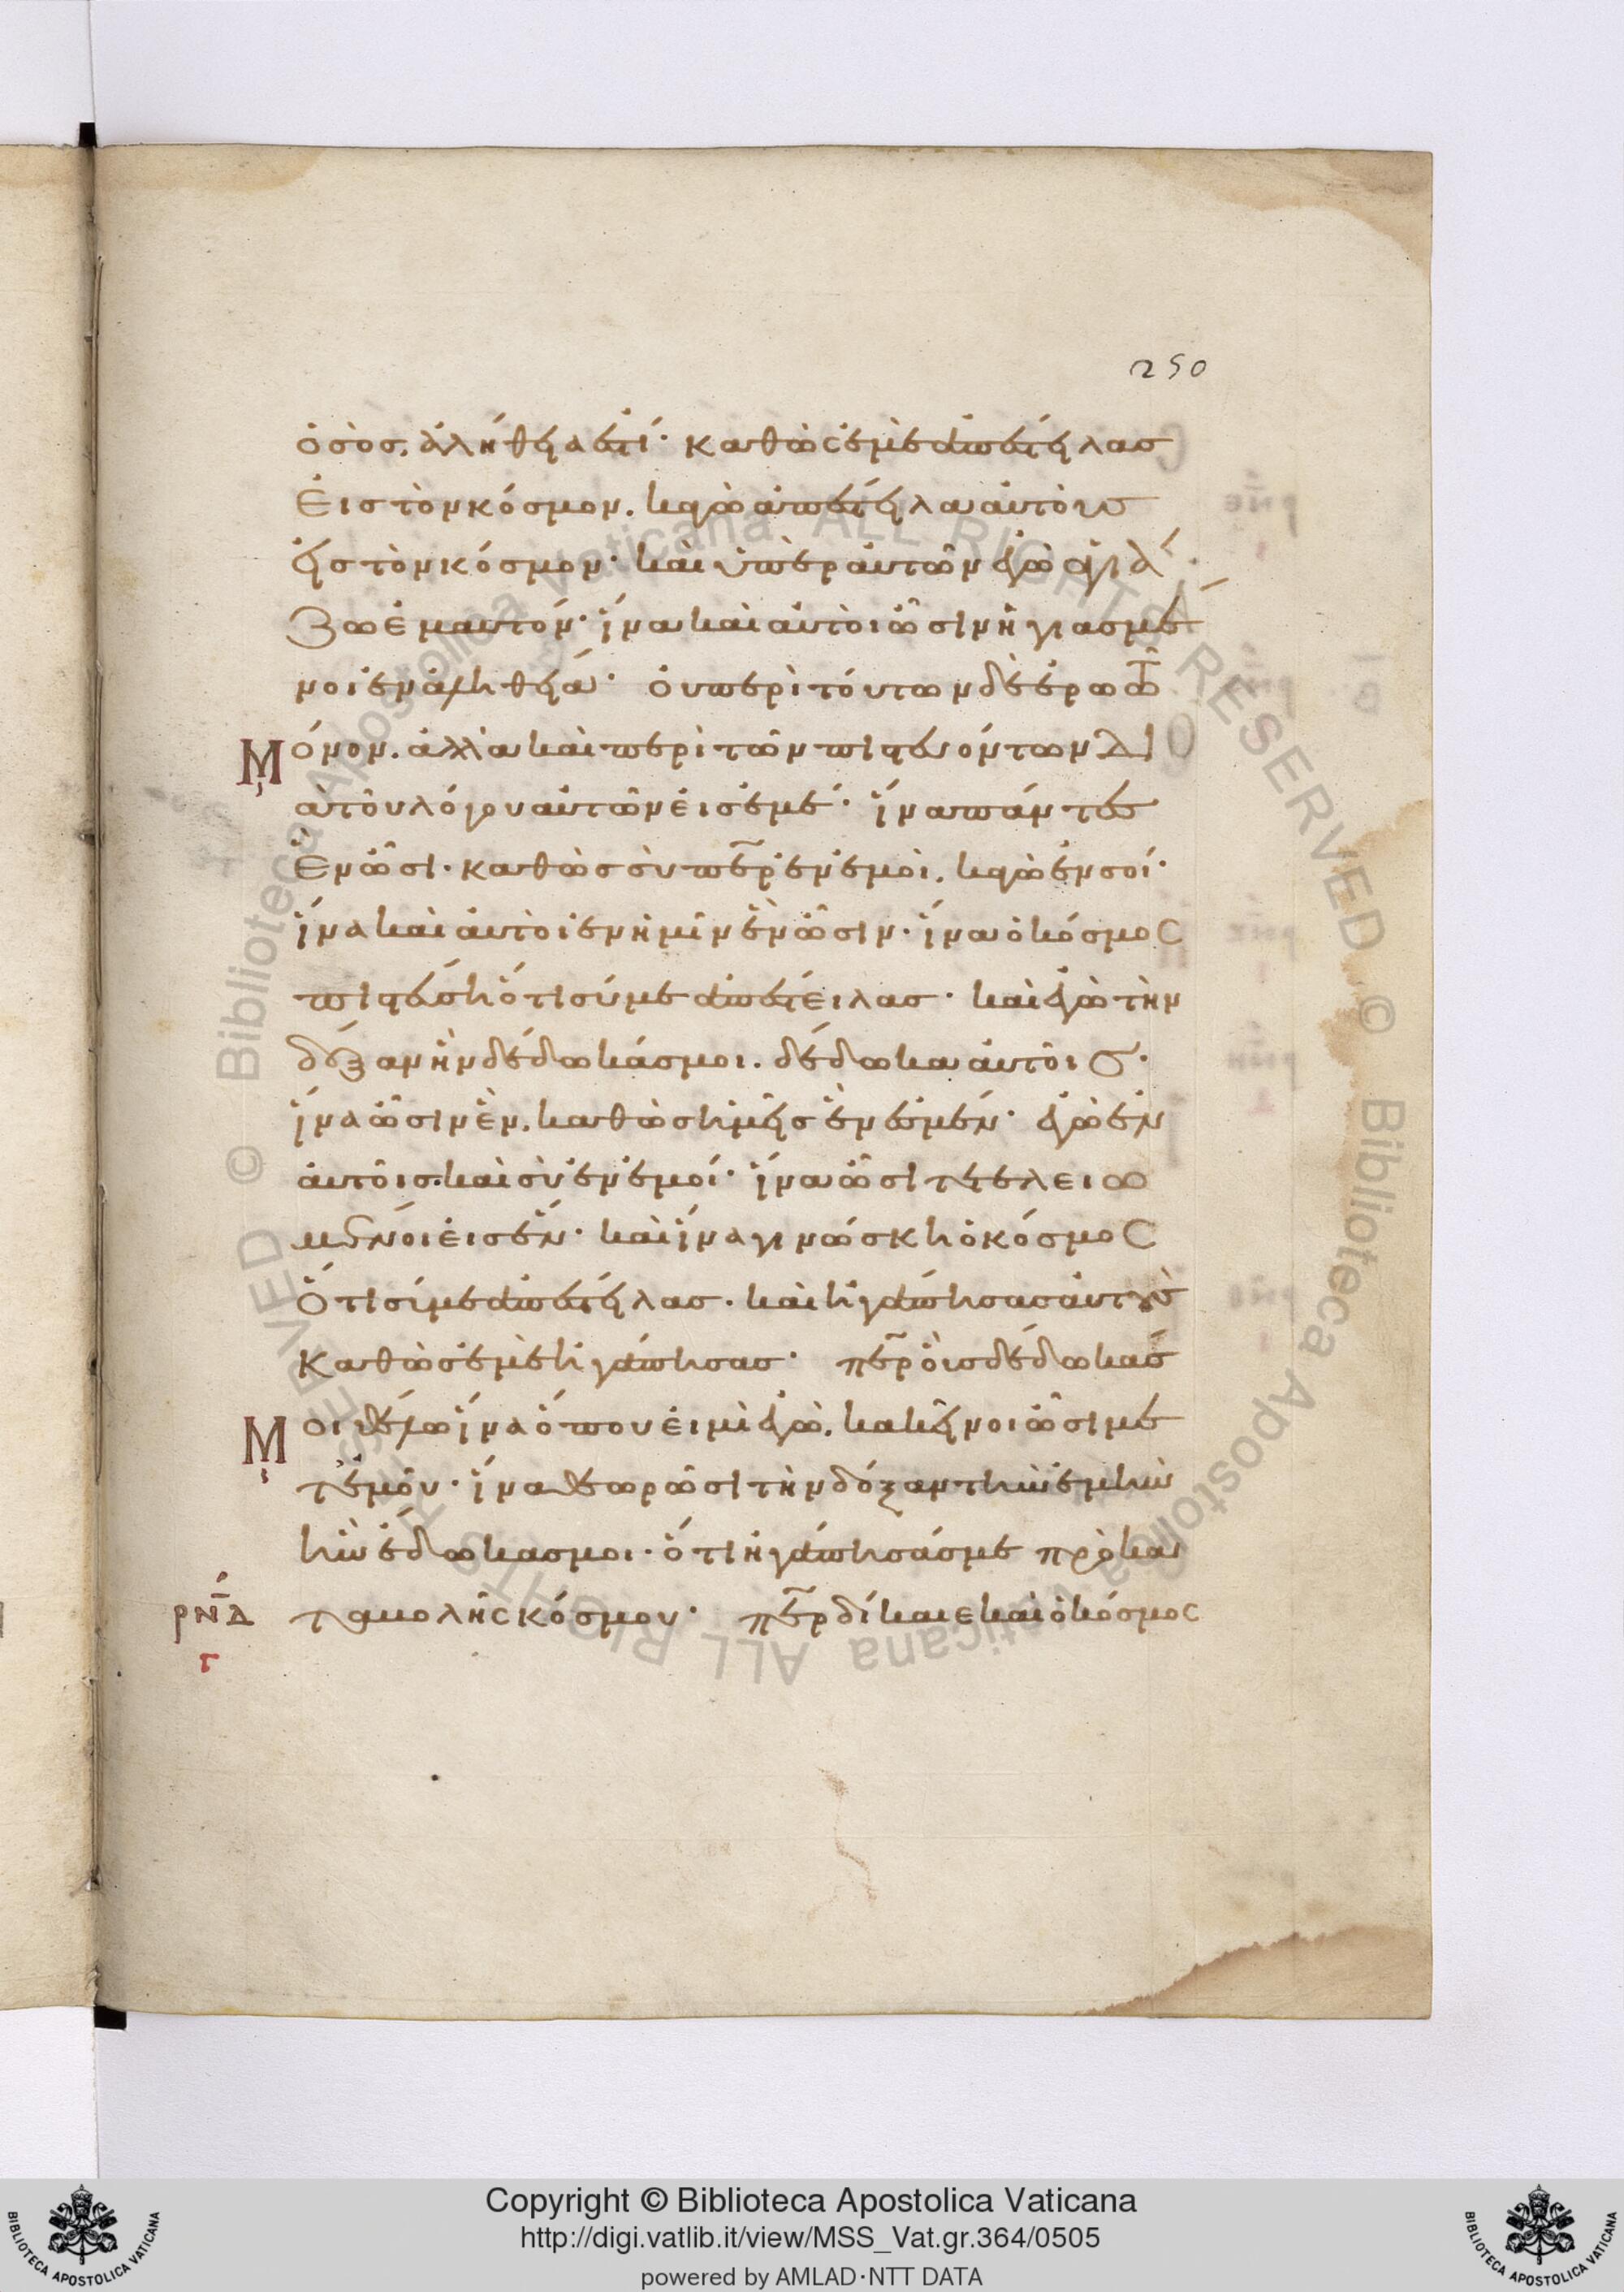 250
ὁ σὸς. ἀλήθειά ἐστι· καθὼς ἐμὲ ἀπέστειλας
εἰς τὸν κόσμον. κἀγὼ ἀπέστειλα αὐτοὺς
εἰς τὸν κόσμον· καὶ ὑπὲρ αὐτῶν ἐγὼ ἁγιά
ζω ἐμαυτόν· ἵνα καὶ αὐτοὶ ὦσιν ἡγιασμέ
νοι ἐν ἀληθείᾳ· οὐ περὶ τούτων δὲ ἐρωτῶ
Μόνον. ἀλλὰ καὶ περὶ τῶν πιστευόντων δι
ὰ τοῦ λόγου αὐτῶν εἰς ἐμέ· ἵνα πάντες
ἓν ὦσι· καθὼς σὺ περ ἐν ἐμοὶ. κἀγὼ ἐν σοί·
ἵνα καὶ αὐτοὶ ἐν ἡμῖν ἓν ὦσιν· ἵνα ὁ κόσμος
πιστεύσῃ ὅτι σύ με ἀπέστειλας· καὶ ἐγὼ τὴν
δόξαν ἣν δέδωκάς μοι. δέδωκα αὐτοῖς·
ἵνα ὦσιν ἓν. καθὼς ἡμεῖς ἕν ἐσμεν· ἐγὼ ἐν
αὐτοῖς. καὶ σὺ ἐν ἐμοί· ἵνα ὦσι τετελειω
μένοι εἰς ἕν· καὶ ἵνα γινώσκῃ ὁ κόσμος
ὅτι σύ με ἀπέστειλας· καὶ ἠγάπησας αὐτοὺς
καθὼς ἐμὲ ἠγάπησας· περ οὓς δέδωκάς
Μοι θέλω ἵνα ὅπου εἰμὶ ἐγὼ. κἀκεῖνοι ὦσι με
τ ἐμοῦ· ἵνα θεωρῶσι τὴν δόξαν τὴν ἐμὴν
ἣν ἔδωκας μοι· ὅτι ἠγάπησάς με πρὸ κα
ταβολῆς κόσμου· περ δίκαιε καὶ ὁ κόσμος
ρνδ
γ
Copyright © Biblioteca Apostolica Vaticana
http://digi.vatlib.it/view/MSS_Vat.gr.364/0505
powered by AMLAD·NTT DATA
BIBLIOTECA APOSTOLICA VATICANA
BIBLIOTECA APOSTOLICA VATICANA
© Biblioteca Apostolica Vaticana ALL RIGHTS RESERVED © Biblioteca Apostolica Vaticana ALL RIGHTS RESERVED